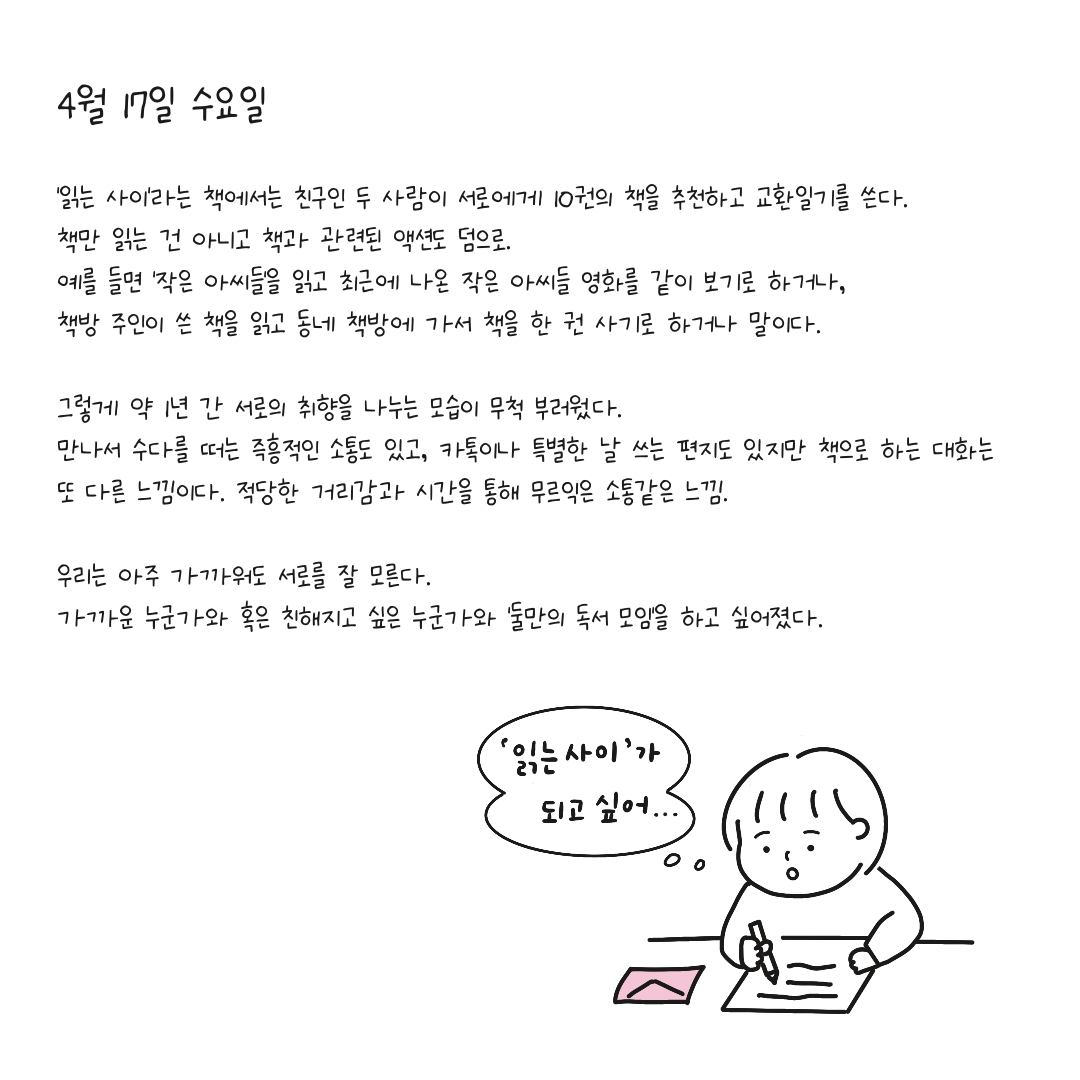 4월 17일 수요일
'읽는 사이'라는 책에서는 친구인 두 사람이 서로에게 10권의 책을 추천하고 교환일기를 쓴다.
책만 읽는 건 아니고 책과 관련된 액션도 덤으로.
예를 들면 '작은 아씨들'을 읽고 최근에 나온 작은 아씨들 영화를 같이 보기로 하거나,
책방 주인이 쓴 책을 읽고 동네 책방에 가서 책을 한 권 사기로 하거나 말이다.
그렇게 약 1년 간 서로의 취향을 나누는 모습이 무척 부러웠다.
만나서 수다를 떠는 즉흥적인 소통도 있고, 카톡이나 특별한 날 쓰는 편지도 있지만 책으로 하는 대화는
또 다른 느낌이다. 적당한 거리감과 시간을 통해 무르익은 소통같은 느낌.
우리는 아주 가까워도 서로를 잘 모른다.
가까운 누군가와 혹은 친해지고 싶은 누군가와 '둘만의 독서 모임'을 하고 싶어졌다.
'읽는 사이'가
되고 싶어...